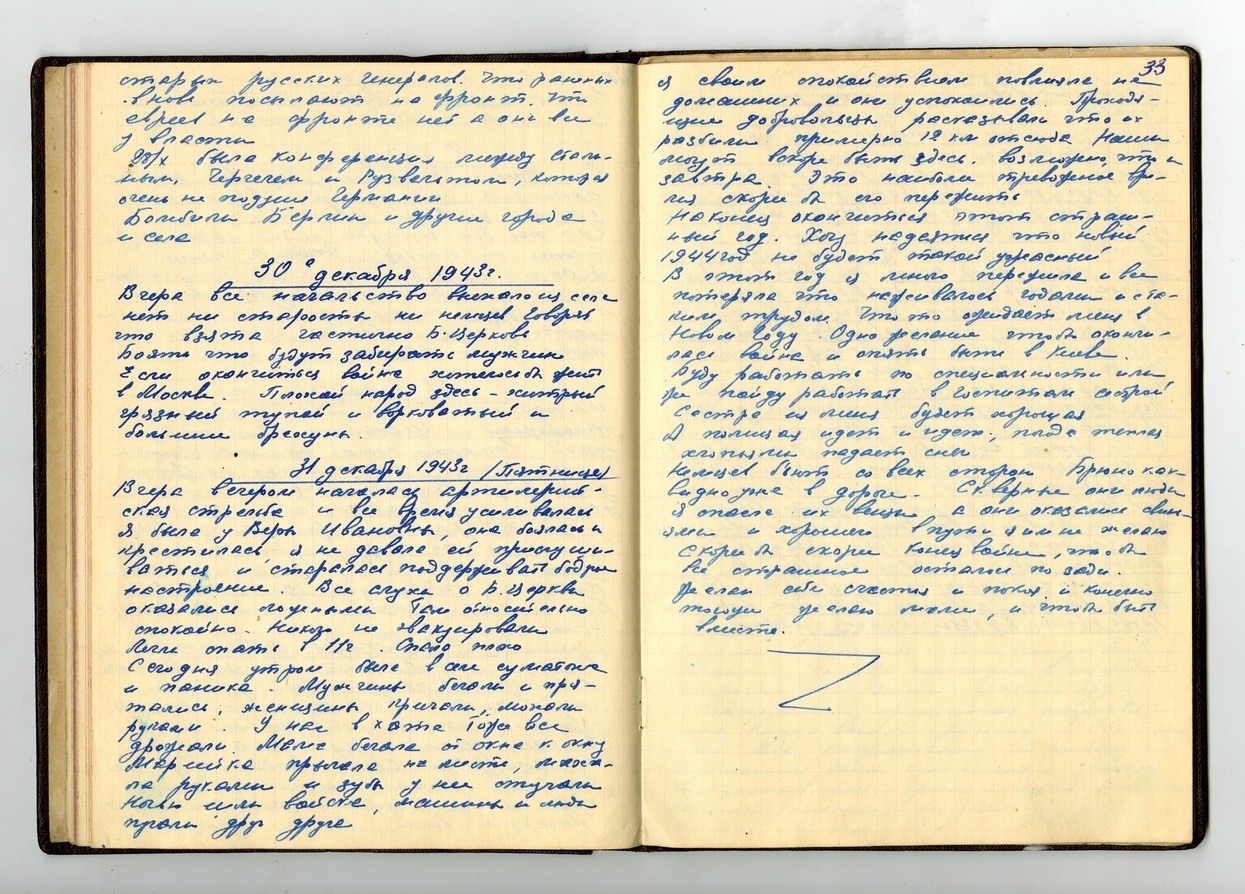 старых русских генералов. Что раненых
вновь посылают на фронт. Что
евреев на фронте нет а они вси
у власти
28/X была конференция между Стали-
ным, Черчелем и Рузвельтом, которая
очень не
Бомбили Берлин и другие города
и села
30го декабря 1943г.
Вчера все начальство выехало из села
нет ни старосты ни немцев говорят
что взята частично Б. Церковь
Боять что будут забирать мужчин
Если окончиться война хотелось бы жить
в Москве. Плохой народ здесь – хитрый
грязный тупой и ворковатый и
большие брехуны.
31 декабря 1943г (Пятница)
Вчера вечером началась артилерий-
ская стрельба и все время усиливалась
Я была у Веры Ивановны, она боялась и
крестилась я не давала ей прислуши-
ваться и старалась поддерживать бодрое
настроение. Все слухи о Б. Церкви
оказались ложными Там относительно
спокойно. Никого не эвакуировали
Легли спать в 11ч. Спала плохо
Сегодня утром была в селе суматоха
и паника. Мужчины бегали и пря-
тались, женщины кричали, махали
руками. У нас в хате тоже все
дрожали. Мама бегала от окна к окну
Марийка прыгала на месте, махо-
ла руками и зубы у нее стучали
Ночью шли войска, машины и люди
друг друга
33
я своим спокойствием повлияла на
домашних и они успокоились. Проходя-
щие добровольцы расказывали что их
разбили примерно 12 км отсюда Наши
могут вскоре быть здесь. возможно, что и
завтра. Это наиболее тревожное вре-
мя скорей б его пережить
Наконец окончиться этот страш-
ный год. Хочу надеятся что новый
1944 год не будет такой ужасный
В этот год я много пережила и все
потеряла что наживалось годами и ста-
ким трудом. Что то ожидает меня в
Новом Году. Одно желание чтоб окончи-
лась война и опять быть в Киеве.
Буду работать по специальности или
же пойду работать в Госпитале сестрой
Сестра из меня будет хорошая
А полицая идет и идет, погода теплая
хлопьями падает снег
Немцев бьют со всех сторон Брюно как
видно уже в дороге. Скверные они люди
Я спасла их вещи а они оказались свин-
ями и хорошего в пути я им не желаю
Скорей б скорей конец войне, чтоб
все страшное осталось по зади.
Желаю себе счастья и покоя и конечно
того же желаю маме, и чтоб быть
вместе.